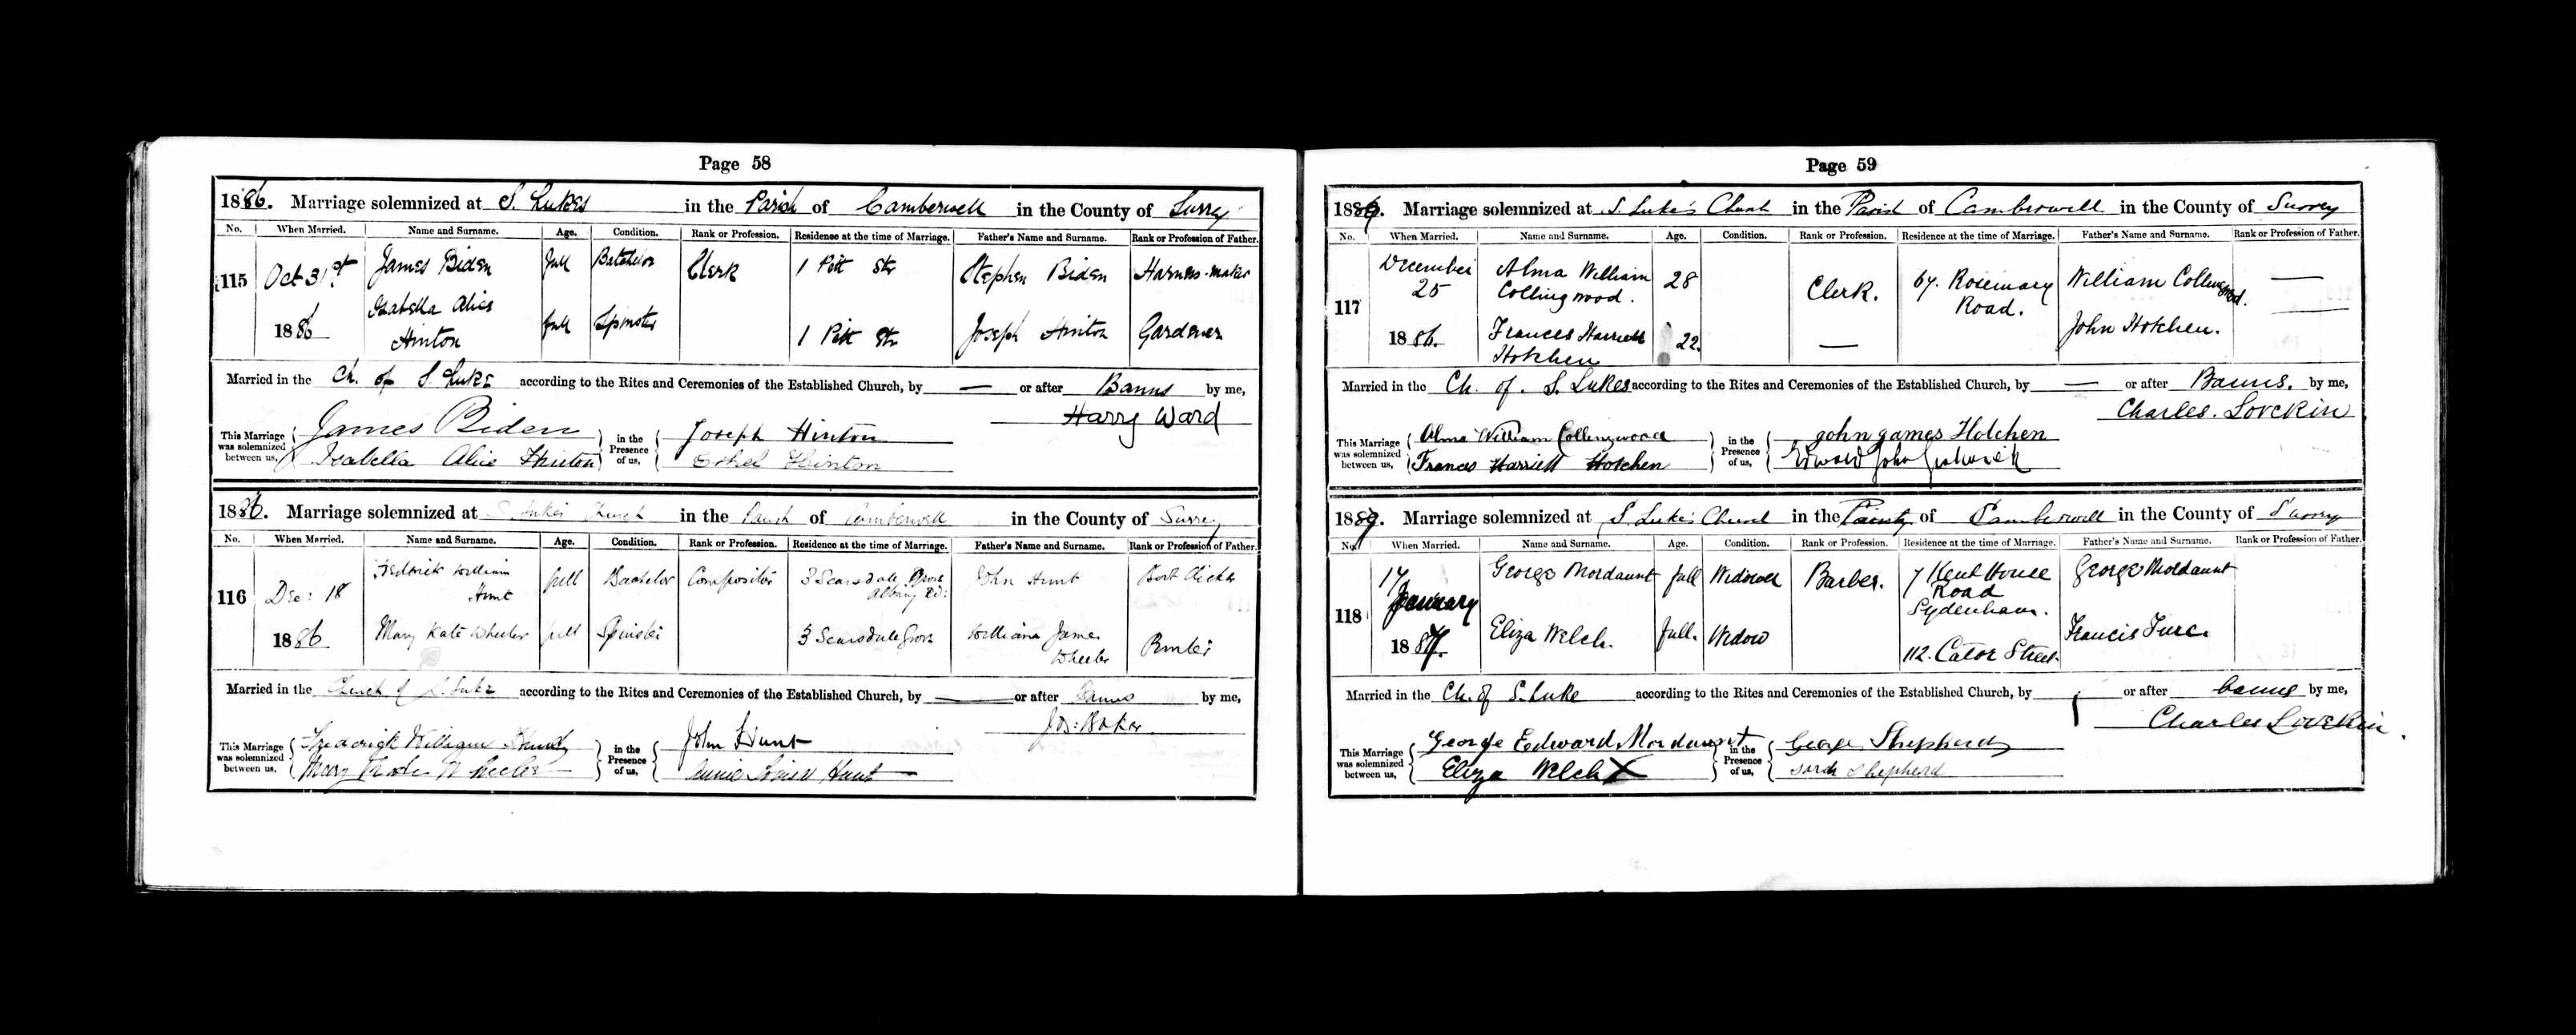 Page 58
1886. Marriage solemnized at S. Lukes in the Parish of Camberwell in the County of Surrey
No. When Married. Name and Surname. Age. Condition. Rank or Profession. Residence at the time of Marriage. Father's Name and Surname. Rank or Profession of Father.
115 Oct 31st 1886 James Biden full Batchelor Clerk 1 Pitt Str Stephen Biden Harness-maker
Isabella Alice
Hinton full Spinster 1 Pitt Str Joseph Hinton Gardener
Married in the Ch. of S. Luke according to the Rites and Ceremonies of the Established Church, by — or after Banns by me,
Harry Ward
This Marriage was solemnized between us, James Biden in the Presence of us, Joseph Hinton
Isabella Alice Hinton Ethel Hinton
1886. Marriage solemnized at S. Lukes Church in the Parish of Camberwell in the County of Surrey
No. When Married. Name and Surname. Age. Condition. Rank or Profession. Residence at the time of Marriage. Father's Name and Surname. Rank or Profession of Father.
116 Dec: 18 1886 Fredrick William
Hunt full Bachelor Compositor 3 Scarsdale Grove
Albany Rd: John Hunt
Mary Kate Wheeler full Spinster 3 Scarsdale Grove William James
Wheeler Printer
Married in the Church of S. Luke according to the Rites and Ceremonies of the Established Church, by — or after Banns by me,
Jos: Baker
This Marriage was solemnized between us, Frederick William Hunt in the Presence of us, John Hunt
Mary Kate Wheeler Annie Hunt
Page 59
Marriage solemnized at S. Luke's Church in the Parish of Camberwell in the County of Surrey
No. When Married. Name and Surname. Age. Condition. Rank or Profession. Residence at the time of Marriage. Father's Name and Surname. Rank or Profession of Father.
117 December
25
1886. Alma William
Collingwood. 28 Clerk. 67. Rosemary
Road. William Collingwood. —
Frances Harriett
Hotchen 22. — John Hotchen. —
Married in the Ch. of. S. Lukes according to the Rites and Ceremonies of the Established Church, by — or after Banns. by me,
Charles. Lovekin
This Marriage was solemnized between us, Alma William Collingwood in the Presence of us, John James Hotchen
Frances Harriett Hotchen Edward John
Marriage solemnized at S Luke's Church in the of Camberwell in the County of Surrey
No. When Married. Name and Surname. Age. Condition. Rank or Profession. Residence at the time of Marriage. Father's Name and Surname. Rank or Profession of Father.
118 17
January
1887. George Mordaunt full Widower Barber. 7 Kent House
Road
Sydenham. George Mordaunt
Eliza Welch. full. Widow 112. Cator Street. Francis
Married in the Ch. of S. Luke according to the Rites and Ceremonies of the Established Church, by or after banns by me,
Charles Lovekin.
This Marriage was solemnized between us, George Edward Mordaunt in the Presence of us, George Shepherd
Eliza Welch X Sarah Shepherd